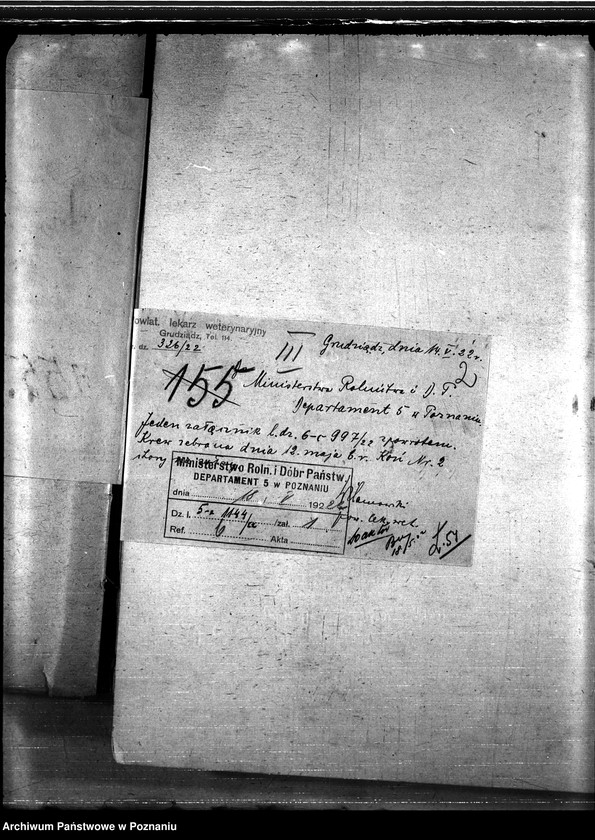 owiat. lekarz weterynaryjny
Grudziądz, Tel. 114.
dz. 326/22
Grudziądz, dnia 14. V. 22 r.
III
2
155
Ministerstwa Rolnictwa i D. P.
Departament 5 w Poznaniu
Jeden załącznik l. dz. 5-c 997/22 zpowrotem.
Krew zebrana dnia 12. maja b. r. Koń Nr. 2
chory
Ministerstwo Roln. i Dóbr Państw.
DEPARTAMENT 5 W POZNANIU
dnia 16 / V 1922
Dz. l. 5-c 1144/22 /zał. 1
Ref. 6 Akta
pow. lek. wet.
do aktów
18/5
L. 51
Archiwum Państwowe w Poznaniu